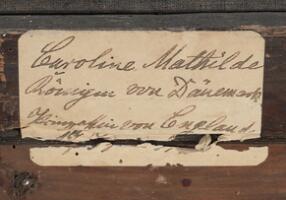 Caroline Mathilde
Königin von Dänemark
Prinzessin von England